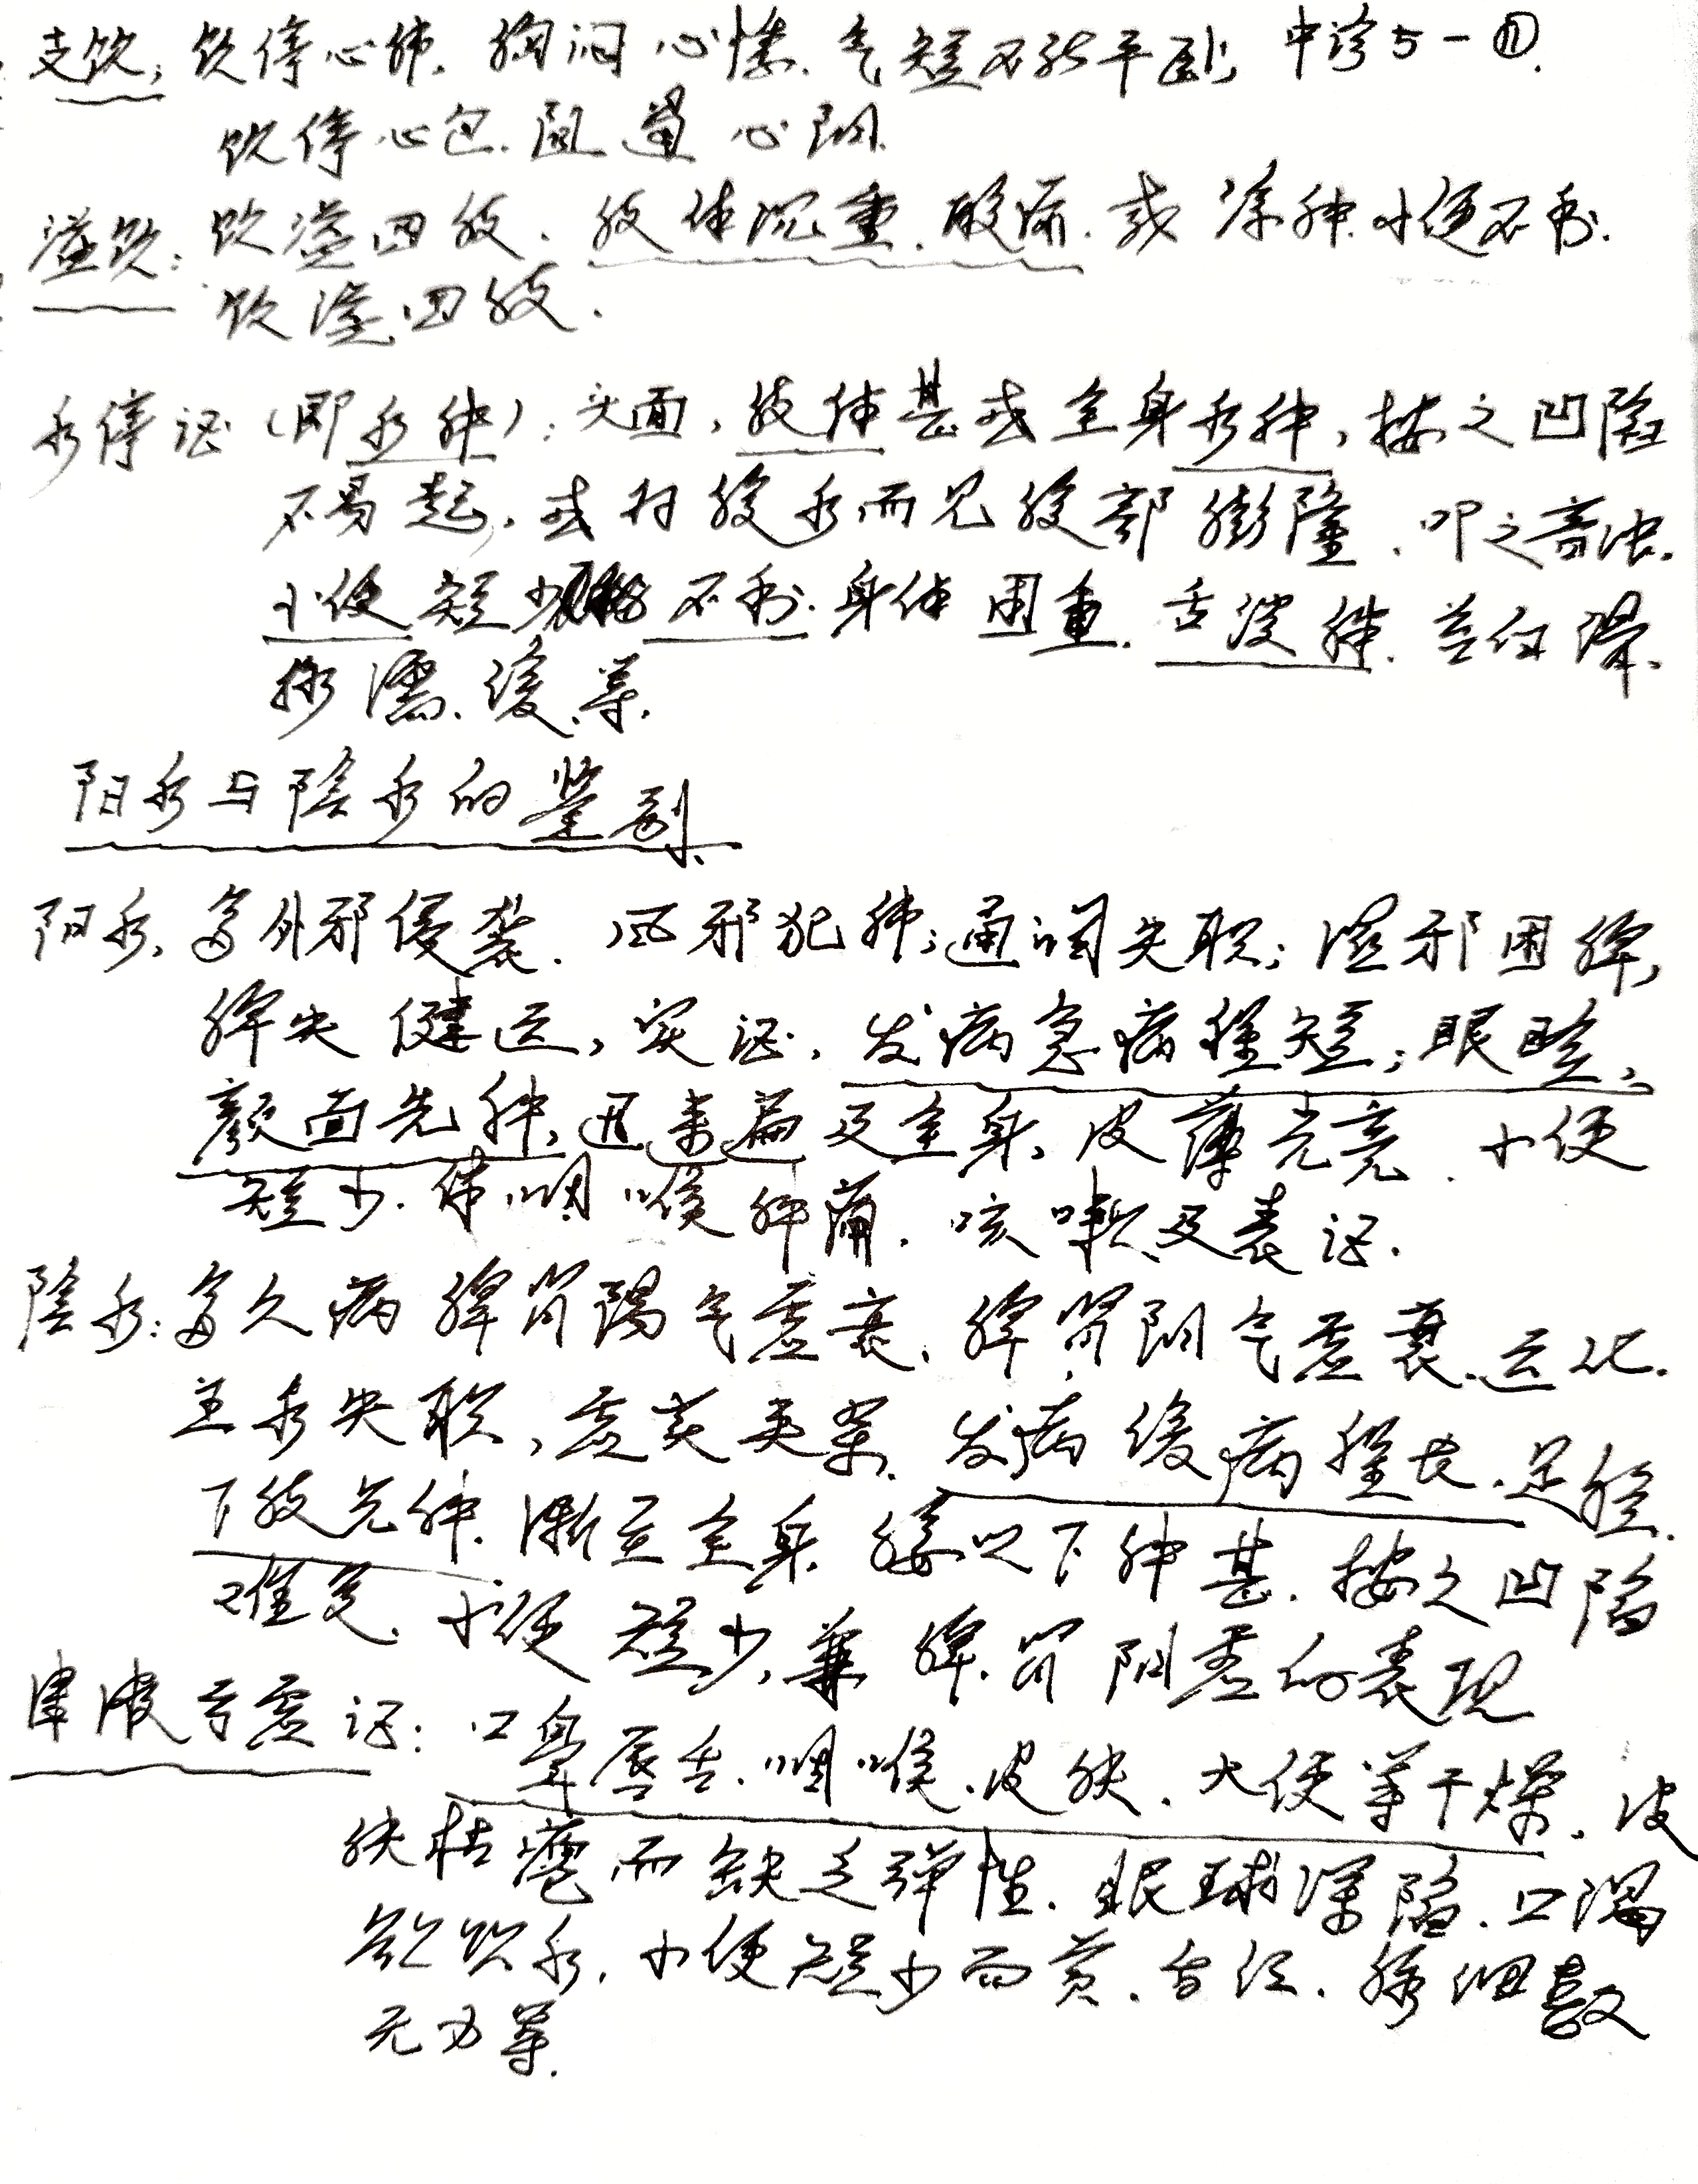 支饮: 饮停心肺. 胸闷心悸. 气短不能平卧; 中诊5-⑪.
饮停心包. 阻遏心阳.
溢饮: 饮溢四肢. 肢体沉重. 酸痛. 或浮肿. 小便不利.
饮溢四肢.
水停证(即水肿): 头面, 肢体甚或全身水肿, 按之凹陷
不易起, 或为腹水而见腹部膨隆. 叩之音浊.
小便短少 不利. 身体困重. 舌淡胖. 苔白滑.
脉濡. 缓. 等.
阳水与陰水的鉴别.
阳水, 多外邪侵袭. 风邪犯肺; 通调失职; 湿邪困脾,
脾失健运, 实证, 发病急病程短; 眼睑,
颜面先肿, 迅速遍及全身, 皮薄光亮. 小便
短少. 伴咽喉肿痛. 咳嗽及表证.
陰水: 多久病脾肾陽气虚衰, 脾肾阳气虚衰. 运化.
主水失职, 虚实夹杂. 发病缓病程长. 足胫.
下肢先肿. 渐至全身. 腰以下肿甚. 按之凹陷
难复. 小便短少, 兼脾. 肾阳虚的表现
津液亏虚证: 口鼻唇舌. 咽喉. 皮肤. 大便等干燥. 皮
肤枯瘪而缺乏弹性. 眼球深陷. 口渴
欲饮水. 小便短少而黄. 舌红. 脉细数
无力等.